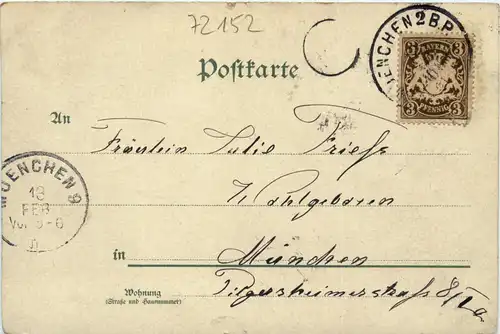 72152
MUENCHEN 2 B.P.
BAYERN
3 3
3 PFENNIG 3
Postkarte
An
Fräulein Julie Friess
Wohlgeboren
MUENCHEN 9
13
FEB
in München
Wohnung
(Straße und Hausnummer)
Pilgersheimerstraße 8/I